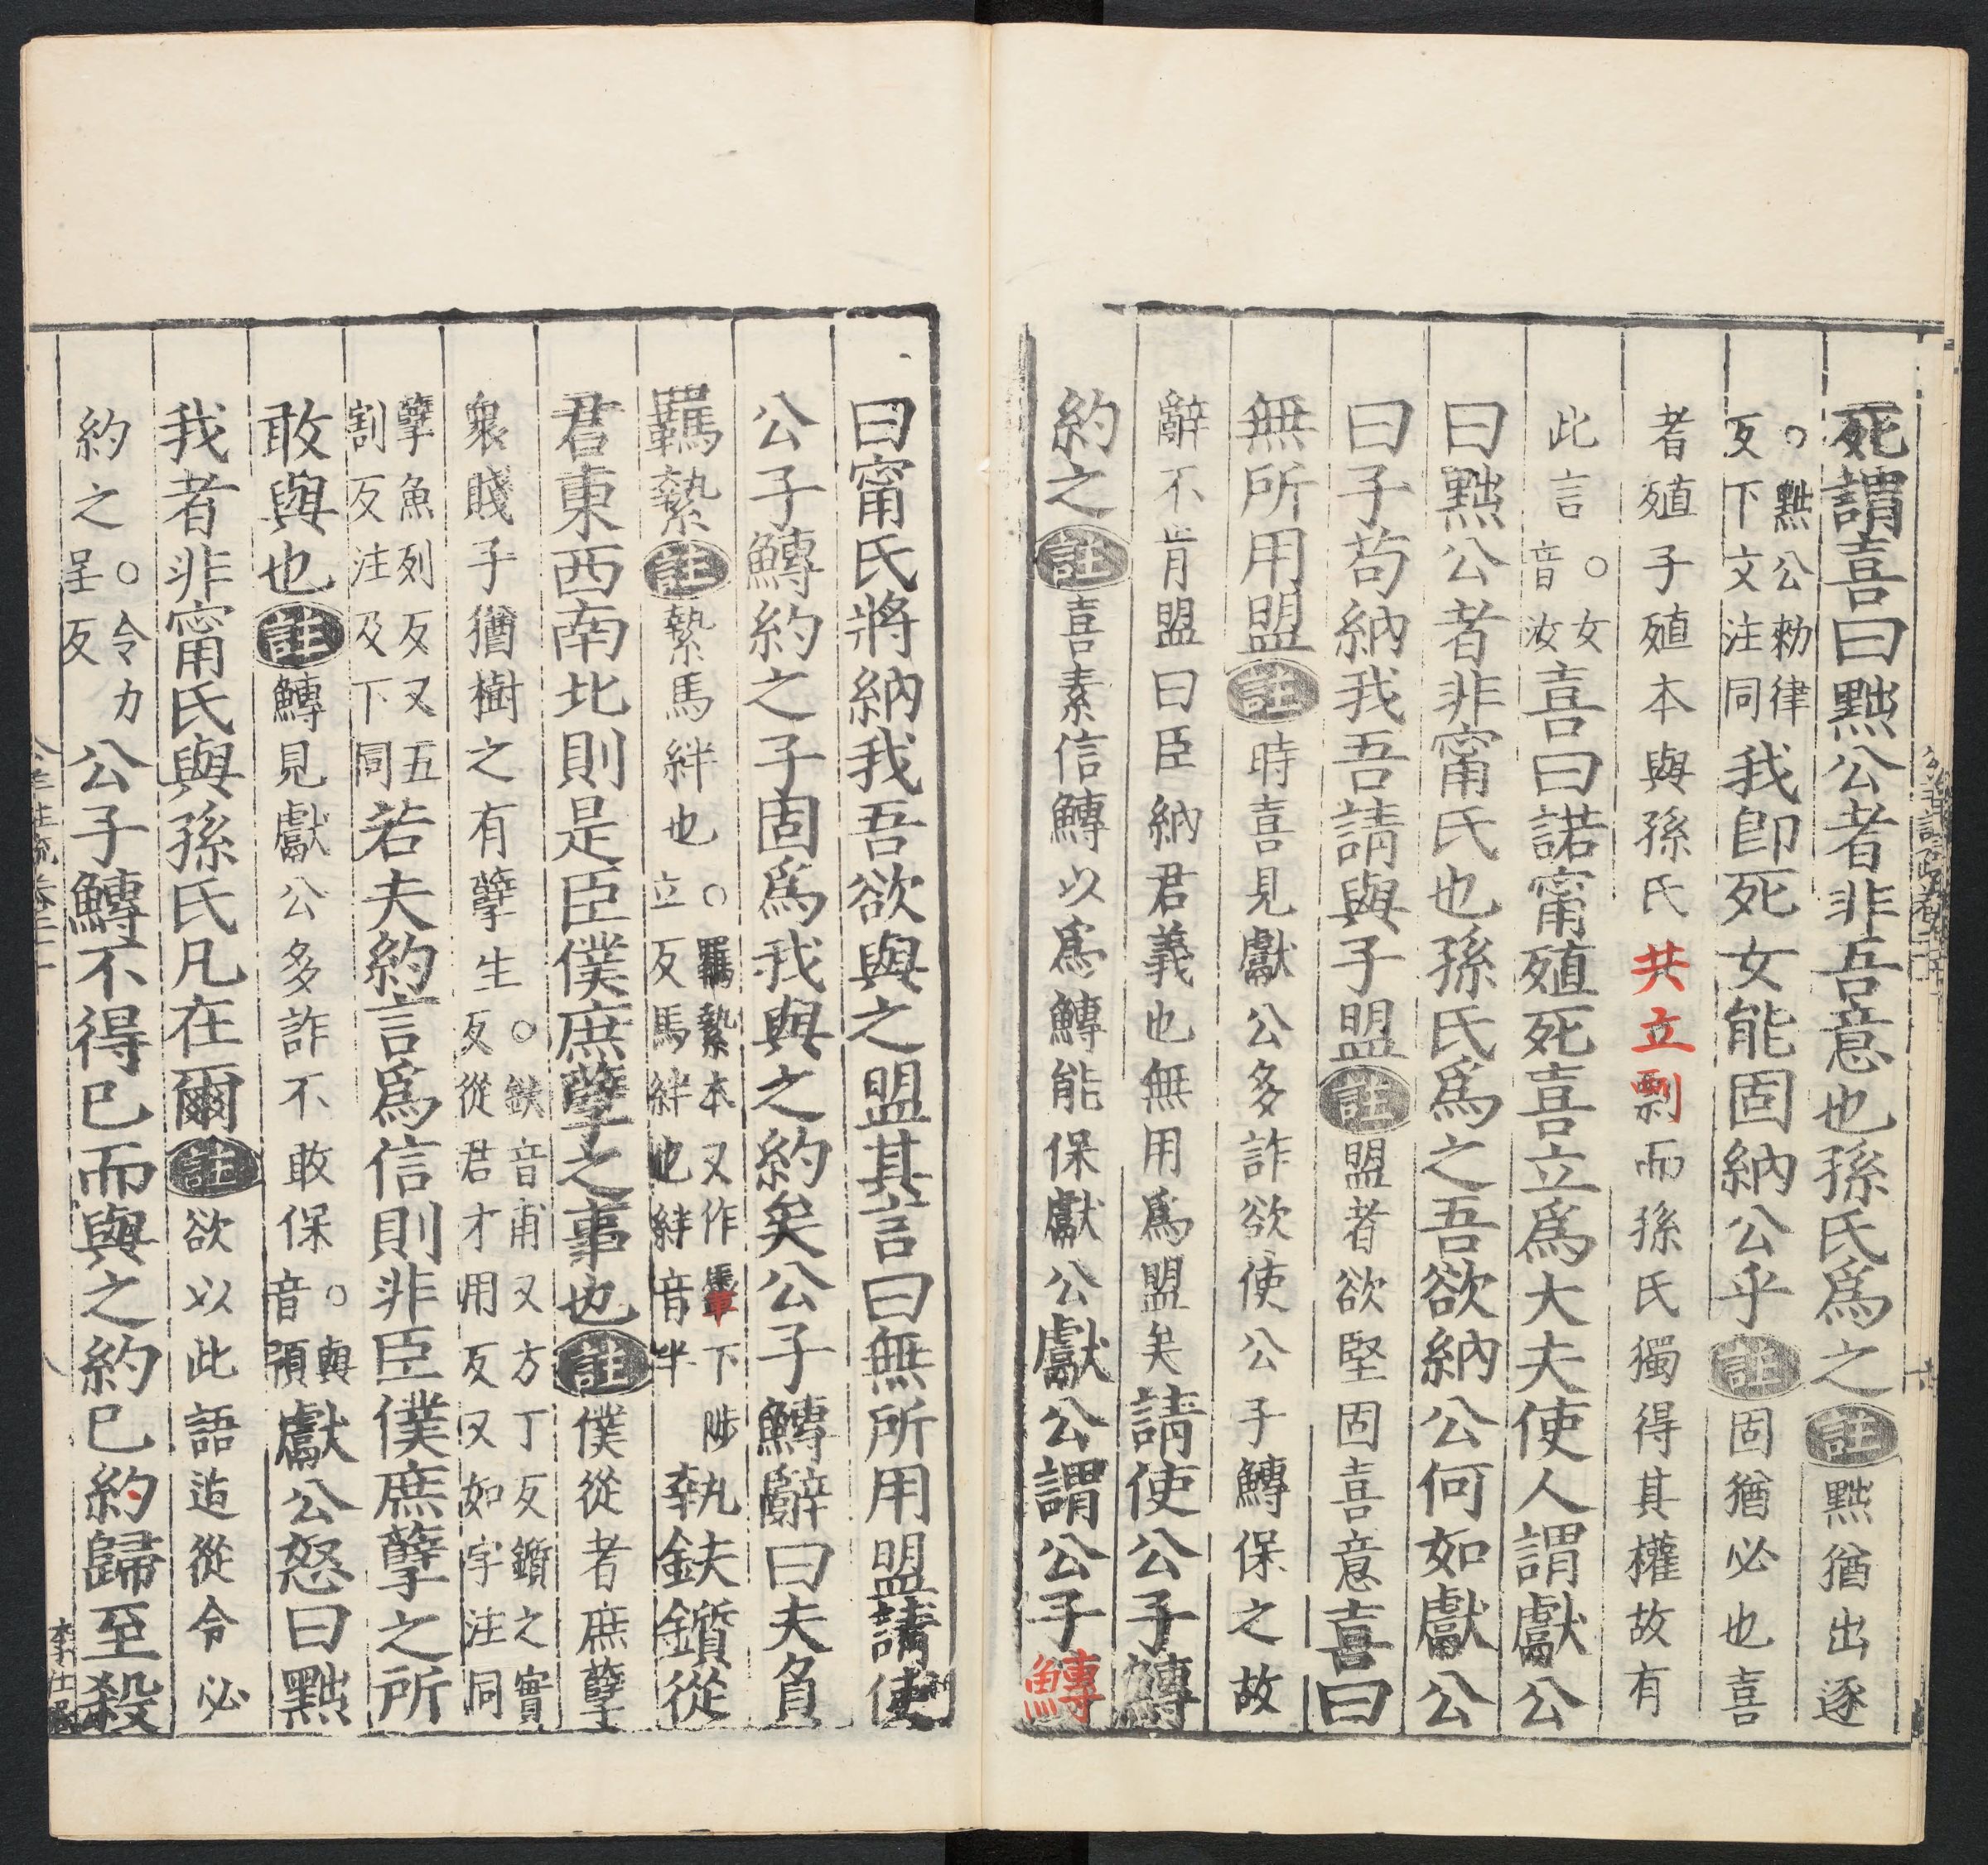 死謂喜曰黜公者非吾意也孫氏爲之註黜猶出逐
○黜公勑律
反下文注同我即死女能固納公乎註固猶必也喜
者殖子殖本與孫氏共立剽而孫氏獨得其權故有
此言○女
音汝喜曰諾甯殖死喜立爲大夫使人謂獻公
曰黜公者非甯氏也孫氏爲之吾欲納公何如獻公
曰子苟納我吾請與子盟註盟者欲堅固喜意喜曰
無所用盟註時喜見獻公多詐欲使公子鱄保之故
辭不肯盟曰臣納君義也無用爲盟矣請使公子鱄
約之註喜素信鱄以爲鱄能保獻公獻公謂公子鱄
曰甯氏將納我吾欲與之盟其言曰無所用盟請使
公子鱄約之子固爲我與之約矣公子鱄辭曰夫負
羈縶註縶馬絆也○羈縶本又作馽下陟
立反馬絆也絆音半執鈇鑕從
君東西南北則是臣僕庶孽之事也註僕從者庶孽
衆賤子猶樹之有孽生○鈇音甫又方丁反鑕之實
反從君才用反又如字注同
孽魚列反又五
割反注及下同若夫約言爲信則非臣僕庶孽之所
敢與也註鱄見獻公多詐不敢保○與
音預獻公怒曰黜
我者非甯氏與孫氏凡在爾註欲以此語迫從令必
約之○令力
呈反公子鱄不得已而與之約已約歸至殺